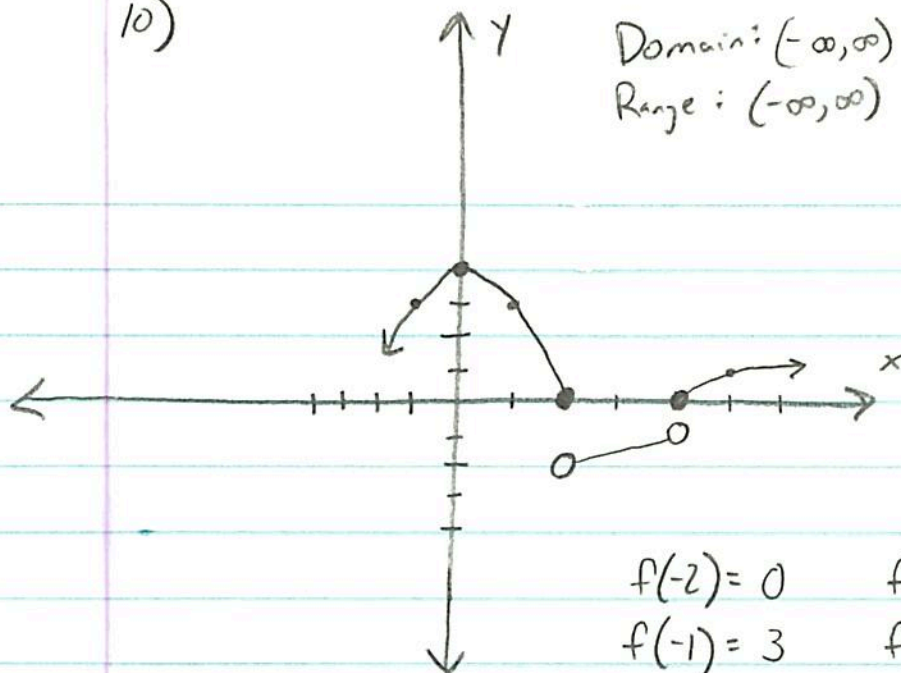 10)
y
Domain: (-∞,∞)
Range: (-∞,∞)
x
f(-2)= 0 f
f(-1)= 3 f